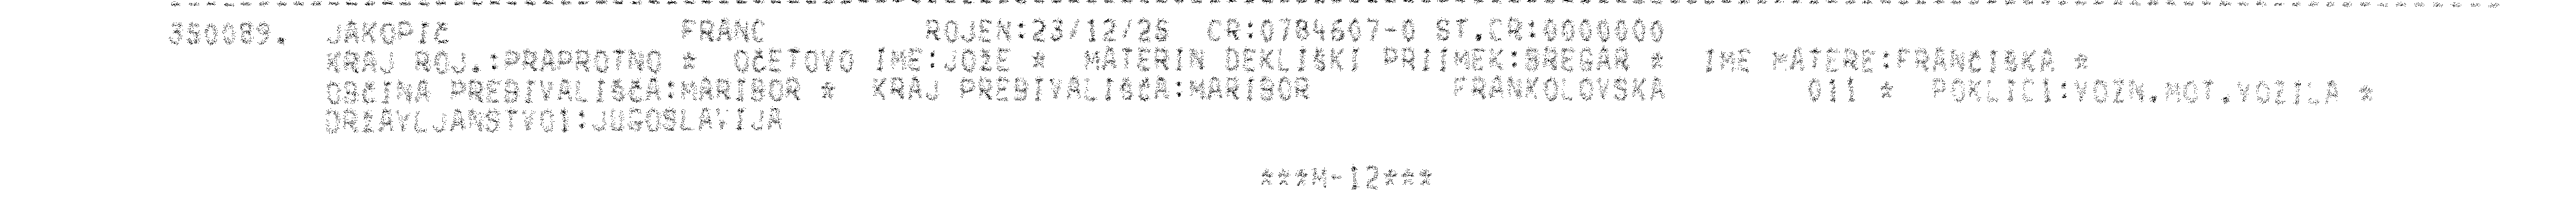 350089. JAKOPIČ FRANC ROJEN:23/12/26 CR:0784607-0 ST.CR:0000000
KRAJ ROJ.:PRAPROTNO * OČETOVO IME:JOŽE * MATERIN DEKLIŠKI PRIIMEK:BREGAR * IME MATERE:FRANČIŠKA *
OBČINA PREBIVALIŠČA:MARIBOR * KRAJ PREBIVALIŠČA:MARIBOR FRANKOLOVSKA 011 * POKLIC1:VOZN.MOT.VOZILA *
DRŽAVLJANSTVO1:JUGOSLAVIJA
***M-12***